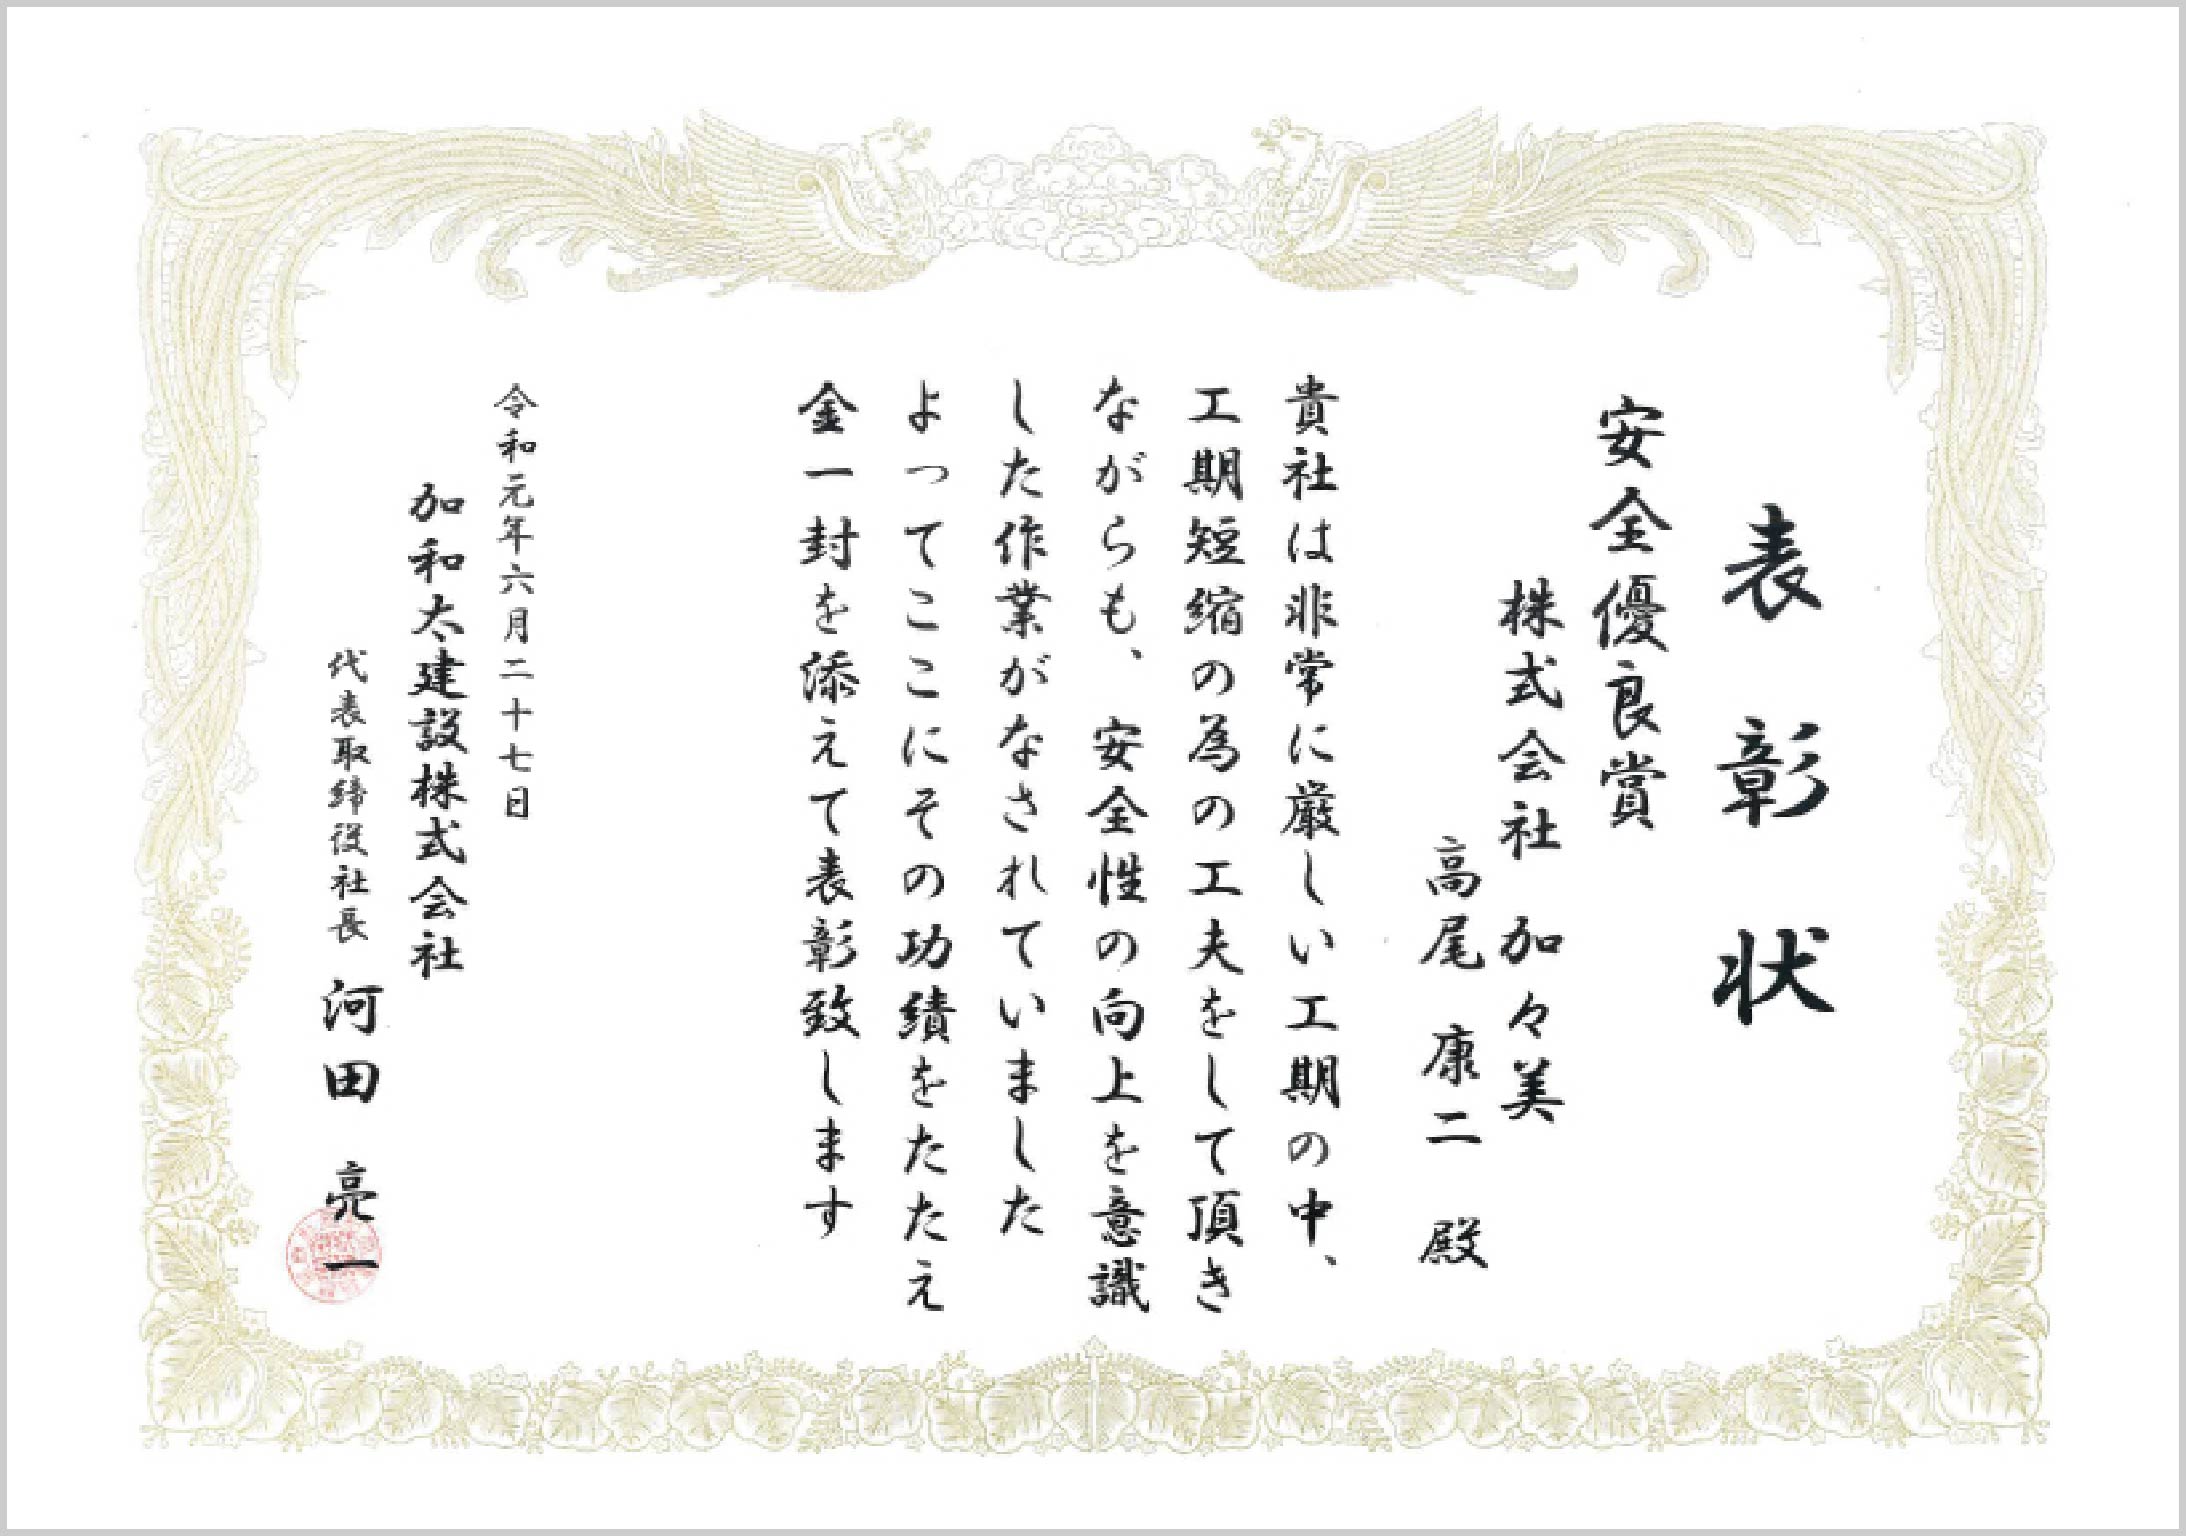 表彰状
安全優良賞
株式会社 加々美
高尾 康二 殿
貴社は非常に厳しい工期の中、
工期短縮の為の工夫をして頂き
ながらも、安全性の向上を意識
した作業がなされていました
よってここにその功績をたたえ
金一封を添えて表彰致します
令和元年六月二十七日
加和太建設株式会社
代表取締役社長 河田 亮一